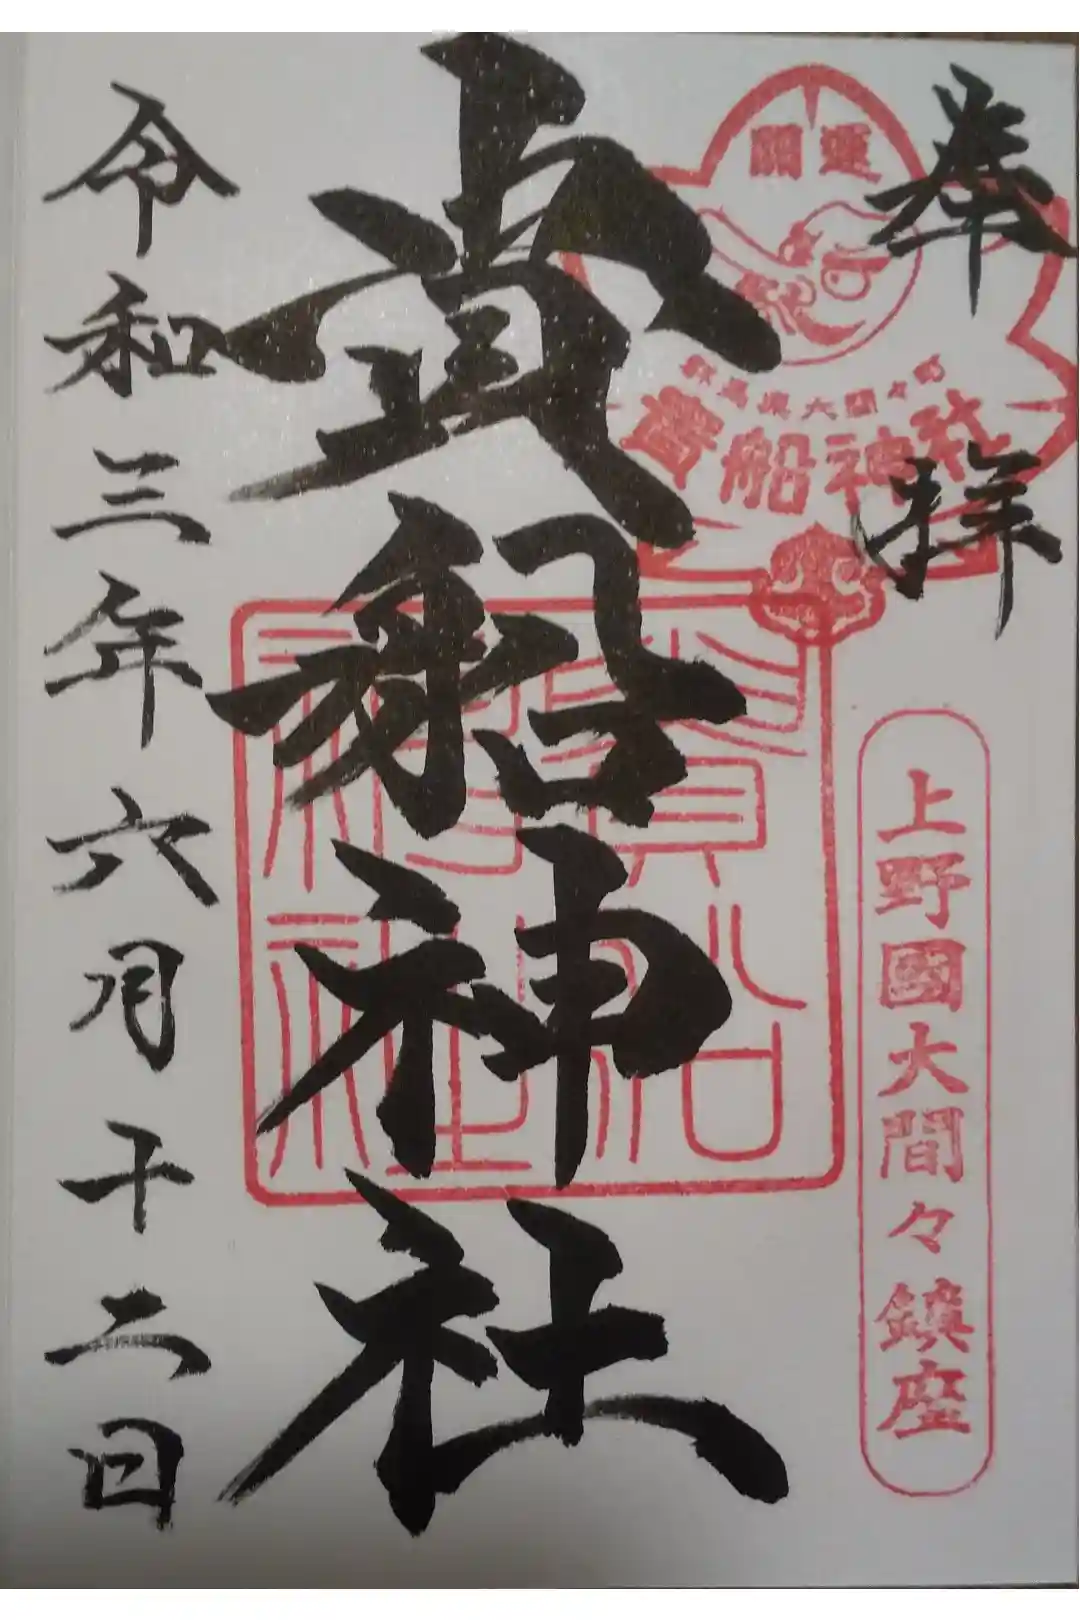 奉拝
開運
群馬県大間々町
貴船神社
上野國大間々鎮座
貴船神社
貴船神社
令和三年六月十二日